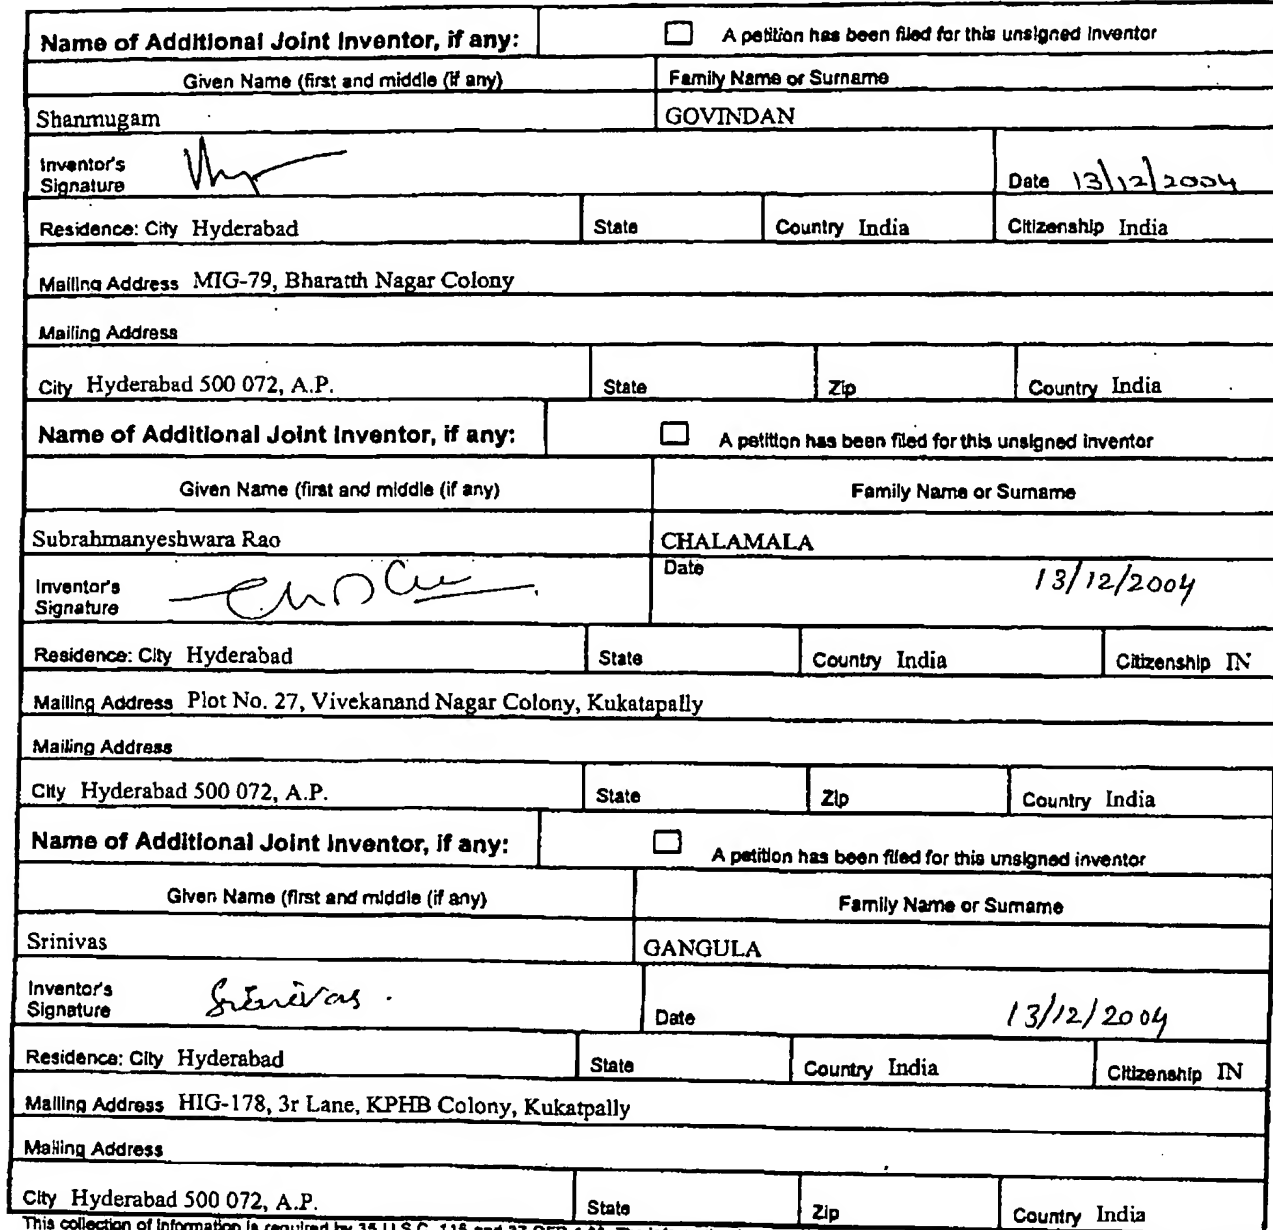 Name of Additional Joint Inventor, if any: ☐ A petition has been filed for this unsigned inventor
Given Name (first and middle (if any) Family Name or Surname
Shanmugam GOVINDAN
Inventor's
Signature Date 13/12/2004
Residence: City Hyderabad State Country India Citizenship India
Mailing Address MIG-79, Bharatth Nagar Colony
Mailing Address
City Hyderabad 500 072, A.P. State Zip Country India
Name of Additional Joint Inventor, if any: ☐ A petition has been filed for this unsigned inventor
Given Name (first and middle (if any) Family Name or Surname
Subrahmanyeshwara Rao CHALAMALA
Inventor's
Signature Date 13/12/2004
Residence: City Hyderabad State Country India Citizenship IN
Mailing Address Plot No. 27, Vivekanand Nagar Colony, Kukatapally
Mailing Address
City Hyderabad 500 072, A.P. State Zip Country India
Name of Additional Joint Inventor, if any: ☐ A petition has been filed for this unsigned inventor
Given Name (first and middle (if any) Family Name or Surname
Srinivas GANGULA
Inventor's
Signature Srinivas. Date 13/12/2004
Residence: City Hyderabad State Country India Citizenship IN
Mailing Address HIG-178, 3r Lane, KPHB Colony, Kukatpally
Mailing Address
City Hyderabad 500 072, A.P. State Zip Country India
This collection of information is required by 35 U.S.C. 115 and 37 CFR